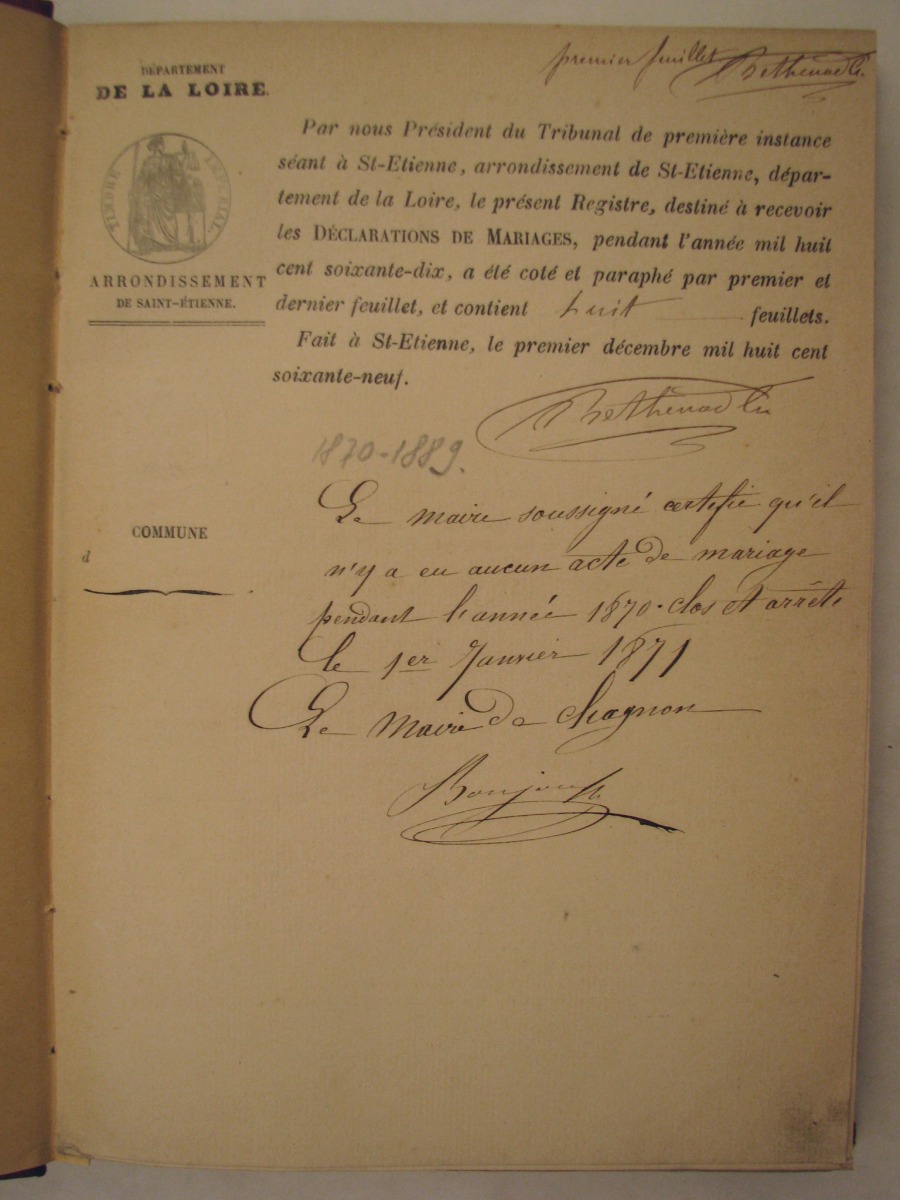 premier feuillet
DÉPARTEMENT
DE LA LOIRE.
TIMBRE IMPÉRIAL
ARRONDISSEMENT
DE SAINT-ÉTIENNE.
Par nous Président du Tribunal de première instance
séant à St-Etienne, arrondissement de St-Etienne, dépar-
tement de la Loire, le présent Registre, destiné à recevoir
les DÉCLARATIONS DE MARIAGES, pendant l'année mil huit
cent soixante-dix, a été coté et paraphé par premier et
dernier feuillet, et contient huit feuillets.
Fait à St-Etienne, le premier décembre mil huit cent
soixante-neuf.
1870-1889.
COMMUNE
d
Le maire soussigné certifie qu'il
n'y a eu aucun acte de mariage
pendant l'année 1870. clos et arrêté
le 1er Janvier 1871
Le Maire de Chagnon